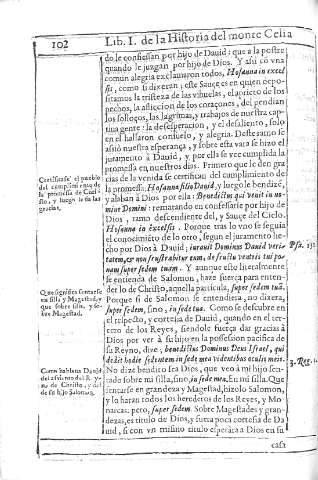 102
Lib. I. de la Historia del monte Celia
do le confiessan por hijo de Dauid: que a la postre
quando le juzgan por hijo de Dios. Y assi cō vna
comun alegria exclamaron todos, Hosanna in excel
sis, como si dixeran; este Sauçe es en quien depo-
sitamos la tristeza de las vihuelas, el aprieto de los
pechos, la afliccion de los coraçones, del pendian
los solloços, las lagrimas, y trabajos de nuestra cap-
tiua gente: la desesperacion, y el desaliento, solo
en el hallaron consuelo, y alegria. Deste sauce
assio nuestra esperança, y sobre esta vara se hizo el
juramento à Dauid, y por ella se vee cumplida la
promessa en nuestros dias. Primero que le den gra
cias de la venida se certifican del cumplimiento de
la promessa. Hosanna filio Dauid, y luego le bendizē,
y alaban à Dios por ella: Benedictus qui venit in no-
mine Domini: rematando en confessarle por hijo de
Dios, ramo descendiente del, y Sauçe del Cielo.
Hosanna in excelsis. Porque tras lo vno se seguia
el conocimiēto de lo otro, segun el juramento he-
cho por Dios à Dauid: iurauit Dominus Dauid veri-
tatem, & non frustrabitur eum, de fructu ventris tui po-
nam super sedem tuam. Y aunque esto literalmente
se entienda de Salomon, haze fuerça para enten-
der lo de Christo, aquella particula, super sedem tuā.
Porque si de Salomon se entendiera, no dixera,
super sedem, sino, in sede tua. Como se descubre en
el respeto, y cortesia de Dauid, quando en el ter-
cero de los Reyes, siendole fuerça dar gracias à
Dios por ver à su hijo en la possession pacifica de
su Reyno, dixe: benedictus Dominus Deus Israel, qui
dedit hodie sedentem in sede mea videntibus oculis meis.
No dize bendito sea Dios, que veo à mi hijo sen-
tado sobre mi silla, sino, in sede mea. En mi silla. Que
sentarse en grandeza y Magestad, hizolo Salomon,
y lo haran todos los herederos de los Reyes, y Mo-
narcas. pero, super sedem. Sobre Magestades y gran-
dezas, es titulo de Dios, y fuera poca cortesia de Da
uid, si con vn mismo titulo esperara à Dios en su
casa
Certificase el pueblo
del cumplimiento de
la promessa de Chri-
sto, y luego le da las
gracias.
Que significa sentarse
en silla y Magestad, y
que sobre silla, y so-
bre Magestad.
Como hablaua Dauid
del assiento del R y-
no de Christo, y del
de su hijo Salomon.
Psa. 131
3. Reg. 1.